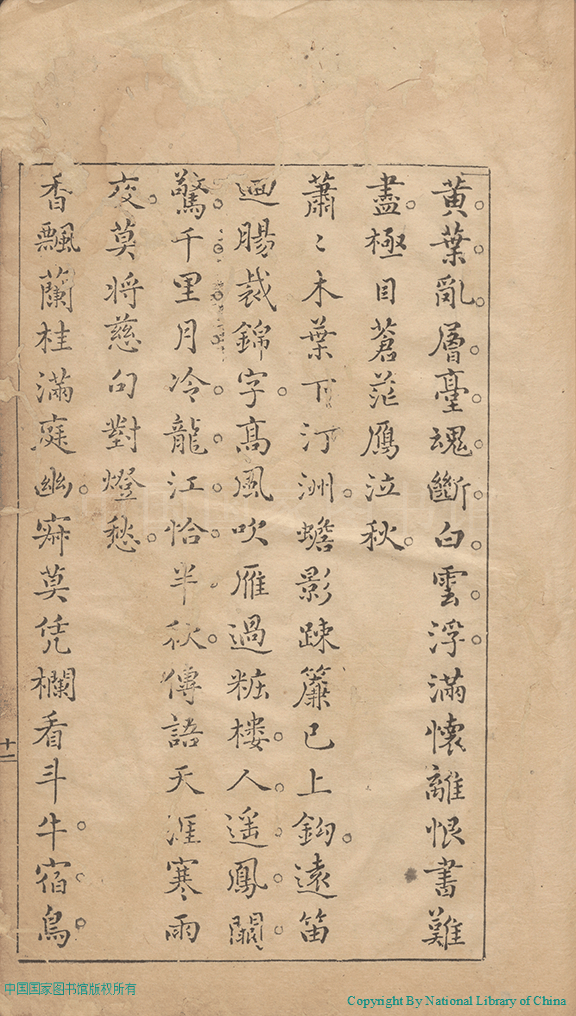 黄葉亂層臺魂斷白雲浮滿懷離恨書難
盡極目蒼茫鴈泣秋
蕭〻木葉下汀洲蟾影踈簾已上鈎遠笛
迴腸裁錦字高風吹雁過粧楼人遥鳳闕
驚千里月冷龍江恰半秋傳語天涯寒雨
夜莫将慈句對燈愁
香飄蘭桂滿庭幽寂莫凭欄看斗牛宿鳥
十二
中国国家图书馆版权所有
Copyright By National Library of China